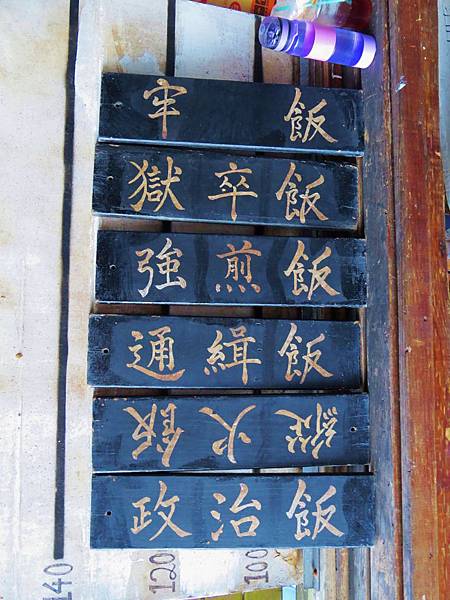 牢飯
獄卒飯
強煎飯
通緝飯
縱火飯
政治飯
140
120
100